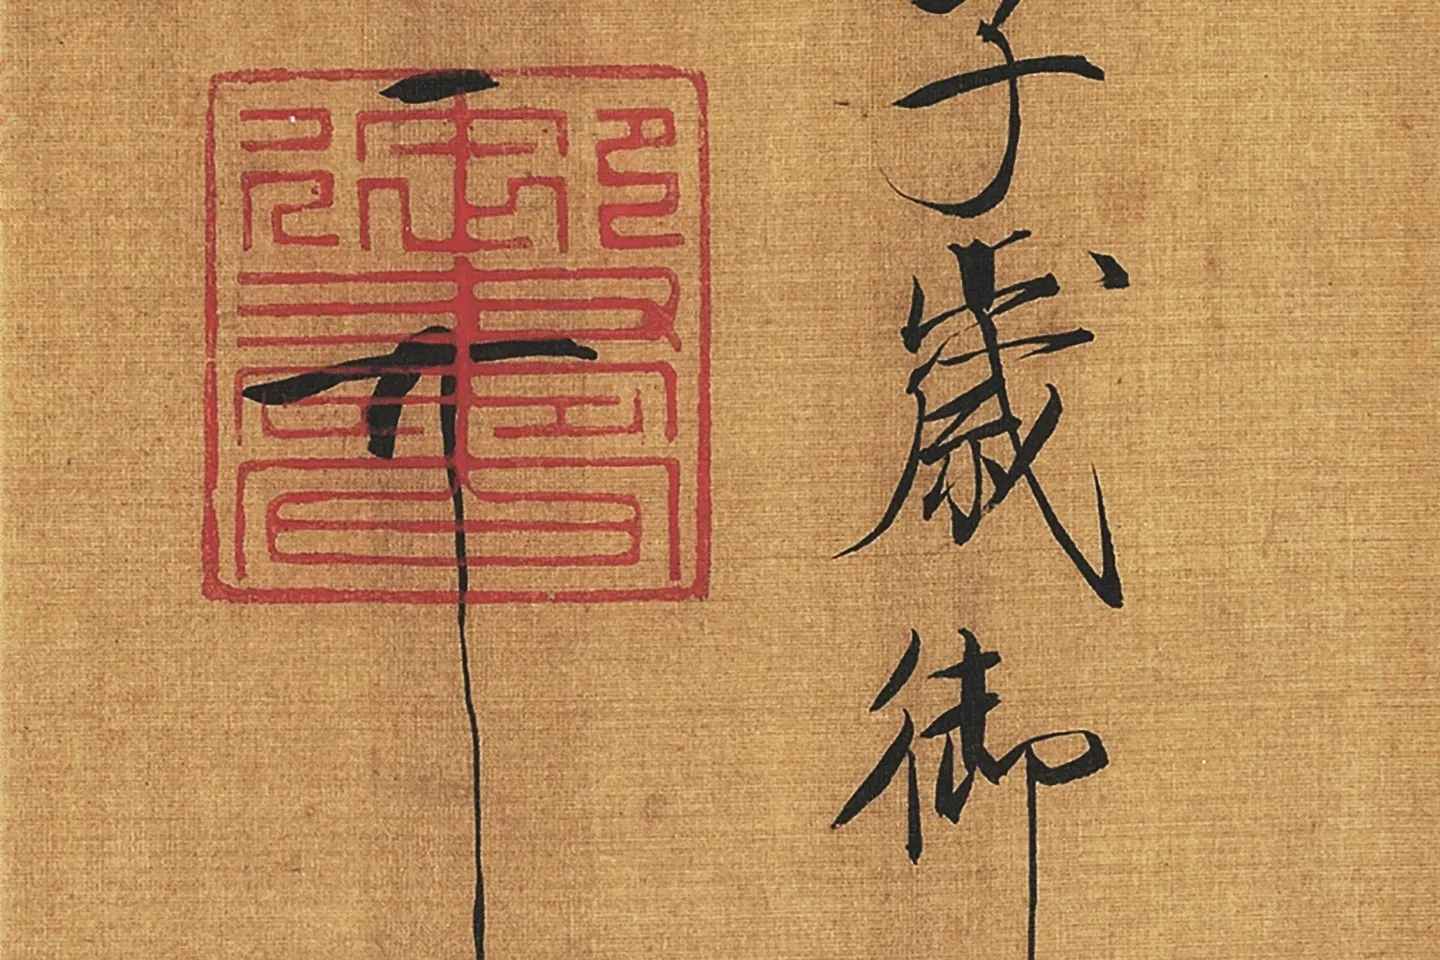 子歲御
御書